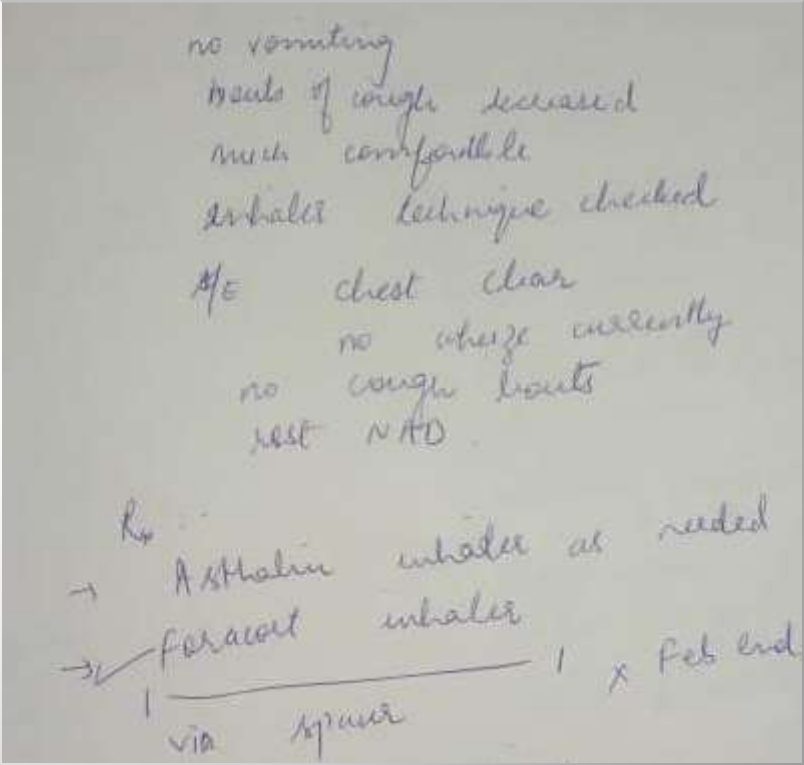 no vomiting
bouts of cough decreased
much comfortble
inhaler technique checked
O/E chest clear
no wheeze currently
no cough bouts
rest NAD.
Rx
→ Asthalin inhaler as needed
→ ✓ Foracort inhaler
1 ——— 1 x Feb end
via spacer